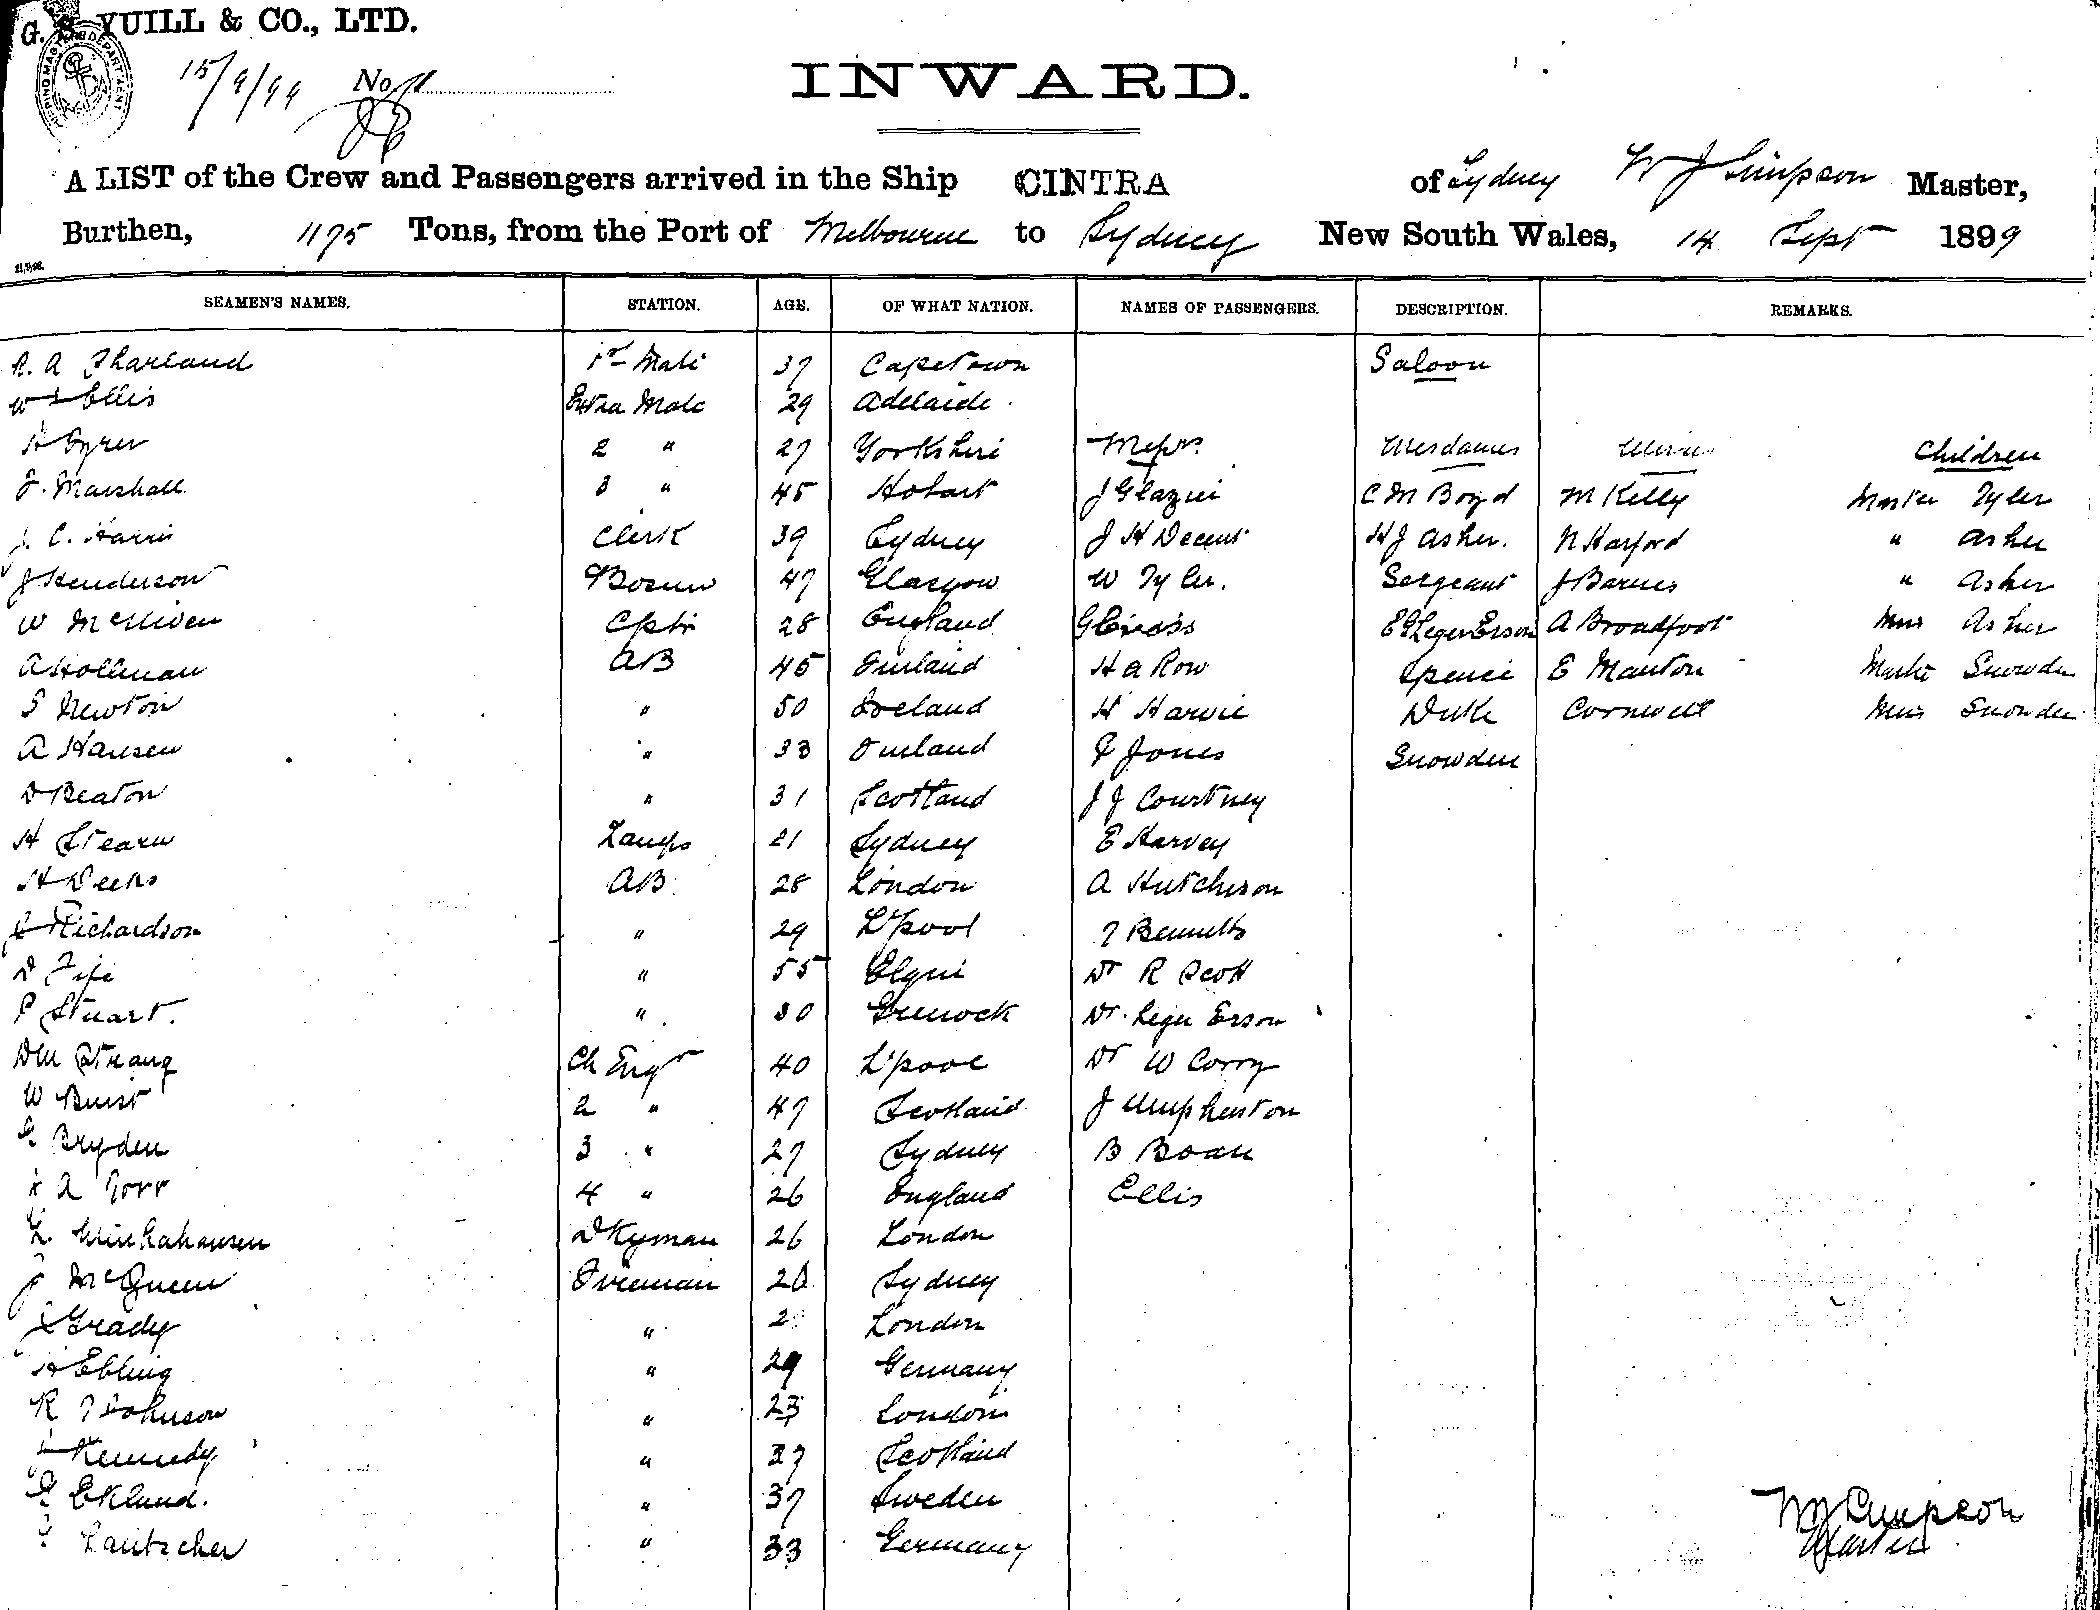 G. S. YUILL & CO., LTD.
15/9/99 No.
INWARD.
A LIST of the Crew and Passengers arrived in the Ship CINTRA of Sydney W J Simpson Master,
Burthen, 1195 Tons, from the Port of Melbourne to Sydney New South Wales, 14 Sept 1899
SEAMEN'S NAMES. STATION. AGE. OF WHAT NATION. NAMES OF PASSENGERS. DESCRIPTION. REMARKS.
R. A Tharland 1st Mate 37 Capetown Saloon
Ellis Extra Mate 29 Adelaide
2 " 27 Yorkshire Messrs. Mesdames Misses Children
F. Marshall 3 " 45 Hobart J Glazier C M Boyd M Kelly Master Tyler
J. C. Harris Clerk 39 Sydney J H Decent H J Asher. N Harford " Asher
J Henderson Bosun 47 Glasgow W Tyler. Sergeant J Barnes " Asher
W McNiven Cptr 28 England G Cross E St Leger Erson A Broadfoot Miss Asher
A Hollman AB 45 Finland H A Row Spence E Manton Master Snowden
S Newton " 50 Iceland H Harvie Duke Cornwell Miss Snowden
A Hansen " 33 Finland F Jones Snowden
D Beaton " 31 Scotland J J Courtney
H Stearn Lamps 21 Sydney E Harvey
H Weeks AB 28 London A Hutchison
Richardson " 29 L'pool T Bennetts
D Fife " 55 Elgin Dr R Scott
P Stuart. " 30 Greenock Dr. Leger Erson
DM Strang Ch Engr 40 L'pool Dr W Corry
W Buist 2 " 47 Scotland J Umpherston
G Bryden 3 " 27 Sydney B Boan
A Torr 4 " 26 England Ellis
Dkyman 26 London
J McQueen Fireman 26 Sydney
Grady " 2 London
H Ebling " 29 Germany
R T Johnson " 23 London
Kennedy " 27 Scotland
Ekland. " 37 Sweden
Lautscher " 33 Germany
WJ Simpson
Master